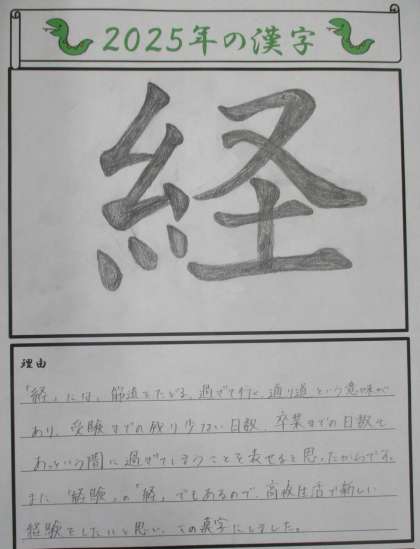 2025年の漢字
経
理由
「経」には、筋道をたどる、過ぎて行く、通り道という意味が
あり、受験までの残り少ない日数、卒業までの日数も
あっという間に過ぎてしまうことを表せると思ったからです。
また「経験」の「経」でもあるので、高校生活で新しい
経験をしたいと思い、この漢字にしました。